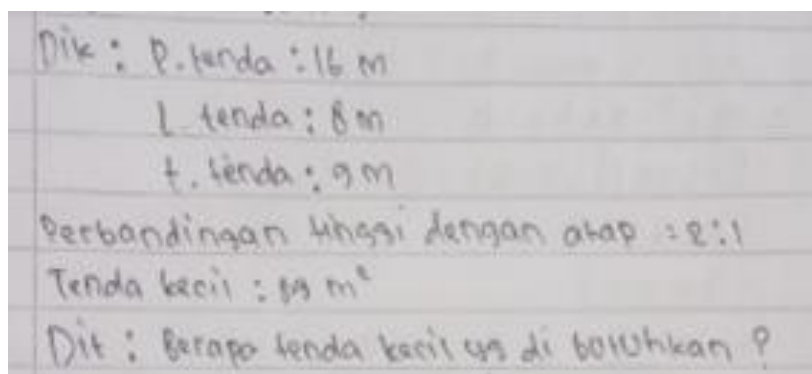 Dik : P. tenda : 16 m
L tenda : 8 m
t. tenda : 9 m
Perbandingan tinggi dengan atap : 2:1
Tenda kecil : m²
Dit : Berapa tenda kecil yg di botuhkan ?